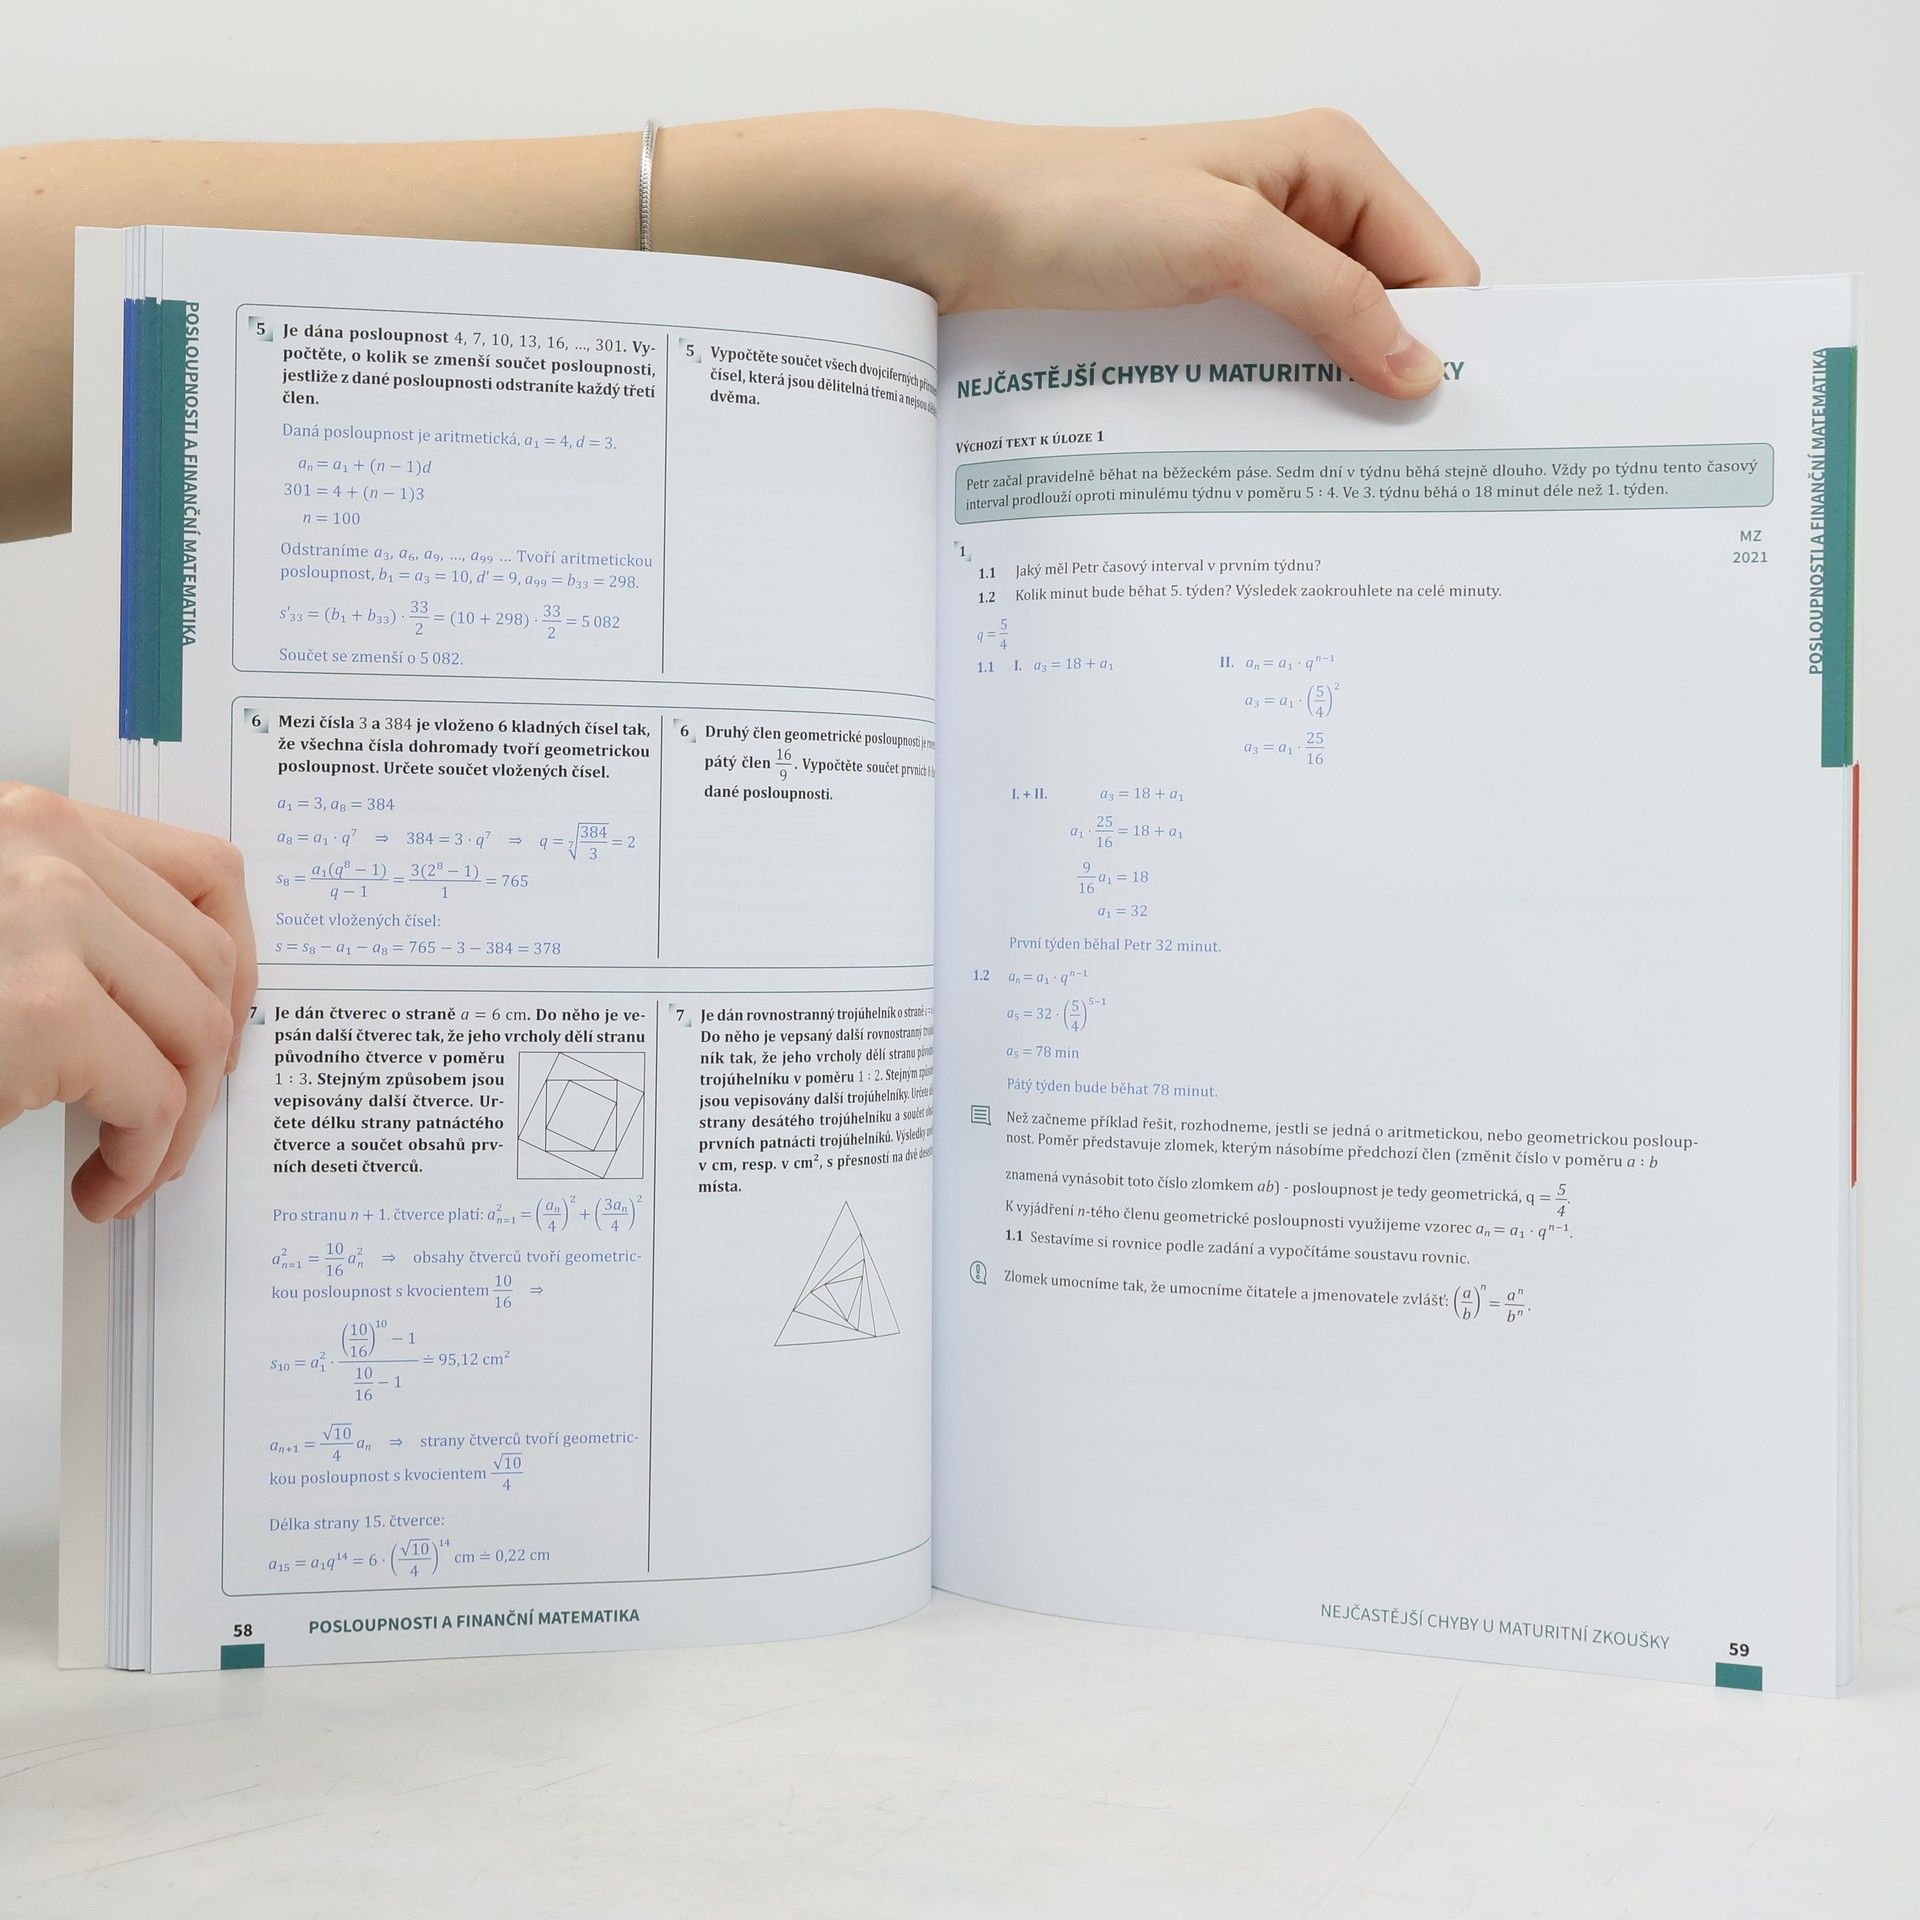 POSLOUPNOSTI A FINANČNÍ MATEMATIKA
5 Je dána posloupnost 4, 7, 10, 13, 16, ..., 301. Vy-
počtěte, o kolik se zmenší součet posloupnosti,
jestliže z dané posloupnosti odstraníte každý třetí
člen.
Daná posloupnost je aritmetická, a₁ = 4, d = 3.
aₙ = a₁ + (n − 1)d
301 = 4 + (n − 1)3
n = 100
Odstraníme a₃, a₆, a₉, ..., a₉₉ ... Tvoří aritmetickou
posloupnost, b₁ = a₃ = 10, d' = 9, a₉₉ = b₃₃ = 298.
s'₃₃ = (b₁ + b₃₃) · 33/2 = (10 + 298) · 33/2 = 5 082
Součet se zmenší o 5 082.
5 Vypočtěte součet všech dvojciferných
čísel, která jsou dělitelná třemi a nejsou
dvěma.
6 Mezi čísla 3 a 384 je vloženo 6 kladných čísel tak,
že všechna čísla dohromady tvoří geometrickou
posloupnost. Určete součet vložených čísel.
a₁ = 3, a₈ = 384
a₈ = a₁ · q⁷ ⇒ 384 = 3 · q⁷ ⇒ q = ⁷√(384/3) = 2
s₈ = a₁(q⁸ − 1)/(q − 1) = 3(2⁸ − 1)/1 = 765
Součet vložených čísel:
s = s₈ − a₁ − a₈ = 765 − 3 − 384 = 378
6 Druhý člen geometrické posloupnosti je
pátý člen 16/9. Vypočtěte součet prvních
dané posloupnosti.
7 Je dán čtverec o straně a = 6 cm. Do něho je ve-
psán další čtverec tak, že jeho vrcholy dělí stranu
původního čtverce v poměru
1 : 3. Stejným způsobem jsou
vepisovány další čtverce. Ur-
čete délku strany patnáctého
čtverce a součet obsahů prv-
ních deseti čtverců.
Pro stranu n + 1. čtverce platí: a²ₙ₌₁ = (aₙ/4)² + (3aₙ/4)²
a²ₙ₌₁ = 10/16 a²ₙ ⇒ obsahy čtverců tvoří geometric-
kou posloupnost s kvocientem 10/16 ⇒
s₁₀ = a₁² · ((10/16)¹⁰ − 1)/(10/16 − 1) ≐ 95,12 cm²
aₙ₊₁ = √10/4 aₙ ⇒ strany čtverců tvoří geometric-
kou posloupnost s kvocientem √10/4
Délka strany 15. čtverce:
a₁₅ = a₁q¹⁴ = 6 · (√10/4)¹⁴ cm ≐ 0,22 cm
7 Je dán rovnostranný trojúhelník o straně
Do něho je vepsaný další rovnostranný
ník tak, že jeho vrcholy dělí stranu
trojúhelníku v poměru 1 : 2. Stejným
jsou vepisovány další trojúhelníky. Určete
strany desátého trojúhelníku a součet
prvních patnácti trojúhelníků. Výsledky
v cm, resp. v cm², s přesností na dvě
místa.
58 POSLOUPNOSTI A FINANČNÍ MATEMATIKA
NEJČASTĚJŠÍ CHYBY U MATURITNÍ
VÝCHOZÍ TEXT K ÚLOZE 1
Petr začal pravidelně běhat na běžeckém páse. Sedm dní v týdnu běhá stejně dlouho. Vždy po týdnu tento časový
interval prodlouží oproti minulému týdnu v poměru 5 : 4. Ve 3. týdnu běhá o 18 minut déle než 1. týden.
MZ
2021
1
1.1 Jaký měl Petr časový interval v prvním týdnu?
1.2 Kolik minut bude běhat 5. týden? Výsledek zaokrouhlete na celé minuty.
q = 5/4
1.1 I. a₃ = 18 + a₁ II. aₙ = a₁ · qⁿ⁻¹
a₃ = a₁ · (5/4)²
a₃ = a₁ · 25/16
I. + II. a₃ = 18 + a₁
a₁ · 25/16 = 18 + a₁
9/16 a₁ = 18
a₁ = 32
První týden běhal Petr 32 minut.
1.2 aₙ = a₁ · qⁿ⁻¹
a₅ = 32 · (5/4)⁵⁻¹
a₅ = 78 min
Pátý týden bude běhat 78 minut.
Než začneme příklad řešit, rozhodneme, jestli se jedná o aritmetickou, nebo geometrickou posloup-
nost. Poměr představuje zlomek, kterým násobíme předchozí člen (změnit číslo v poměru a : b
znamená vynásobit toto číslo zlomkem ab) - posloupnost je tedy geometrická, q = 5/4.
K vyjádření n-tého členu geometrické posloupnosti využijeme vzorec aₙ = a₁ · qⁿ⁻¹.
1.1 Sestavíme si rovnice podle zadání a vypočítáme soustavu rovnic.
Zlomek umocníme tak, že umocníme čitatele a jmenovatele zvlášť: (a/b)ⁿ = aⁿ/bⁿ.
POSLOUPNOSTI A FINANČNÍ MATEMATIKA
NEJČASTĚJŠÍ CHYBY U MATURITNÍ ZKOUŠKY 59